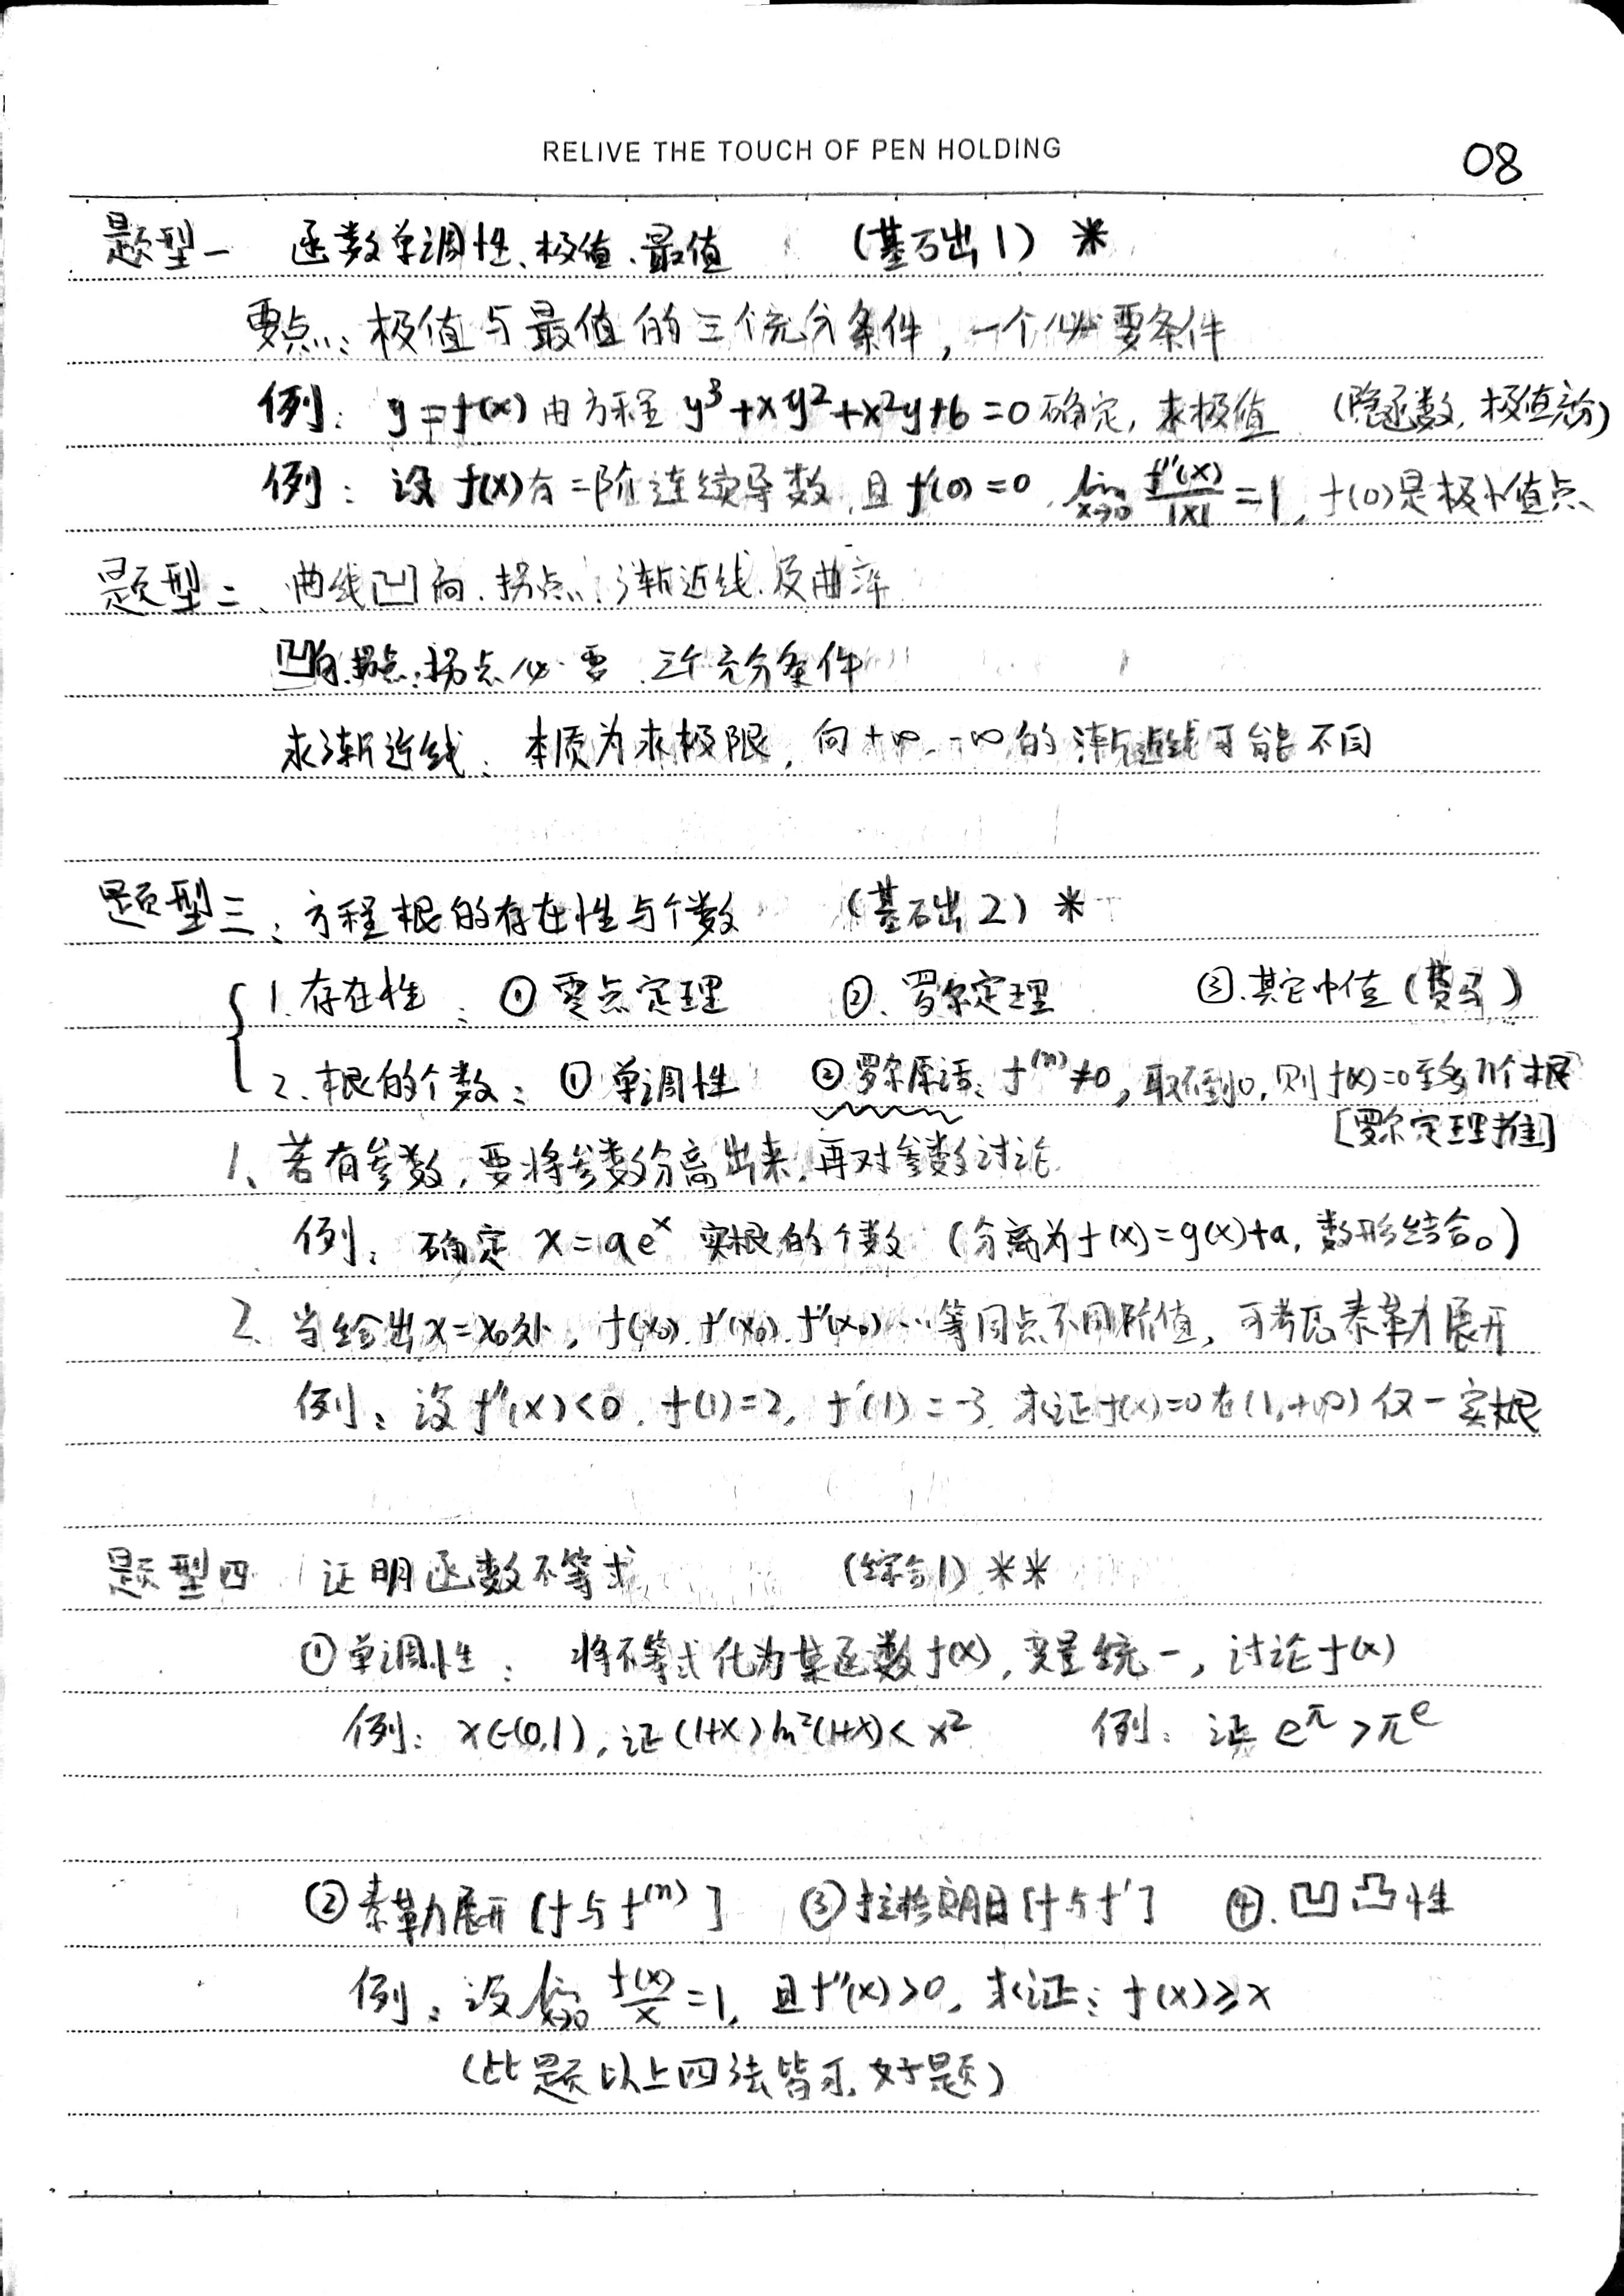 RELIVE THE TOUCH OF PEN HOLDING
08
题型一 函数单调性、极值、最值 (基石出1) *
要点: 极值与最值的三个充分条件, 一个必要条件
例: y=f(x) 由方程 y³+xy²+x²y+6=0 确定, 求极值 (隐函数, 极值充分)
例: 设 f(x)有二阶连续导数, 且 f'(0)=0, lim x→0 f''(x)/|x| =1, f(0)是极小值点
题型二、曲线凹向、拐点、渐近线、及曲率
凹向、拐点: 拐点必要、三个充分条件
求渐近线: 本质为求极限, 向+∞、-∞的渐近线可能不同
题型三: 方程根的存在性与个数 (基石出2) *
1. 存在性: ① 零点定理 ②. 罗尔定理 ③. 其它中值(费马)
2. 根的个数: ① 单调性 ② 罗尔原话: f⁽ⁿ⁾≠0, 取不到0, 则 f(x)=0至多n个根
[罗尔定理推]
1、若有参数, 要将参数分离出来, 再对参数讨论
例: 确定 x=aeˣ 实根的个数 (分离为f(x)=g(x)+a, 数形结合。)
2. 当给出x=x₀处, f(x₀).f'(x₀).f''(x₀)…等同点不同阶值, 可考虑泰勒展开
例: 设f''(x)<0, f(1)=2, f'(1)=-3, 求证f(x)=0在(1,+∞)仅一实根
题型四 证明函数不等式 (综合1) **
① 单调性: 将不等式化为某函数f(x), 变量统一, 讨论f(x)
例: x∈(0,1), 证(1+x)ln²(1+x)<x² 例: 证 e^π>π^e
② 泰勒展开[f与f⁽ⁿ⁾] ③ 拉格朗日[f与f'] ④. 凹凸性
例: 设 lim x→0 f(x)/x =1, 且f''(x)>0, 求证: f(x)≥x
(此题以上四法皆可, 好题)